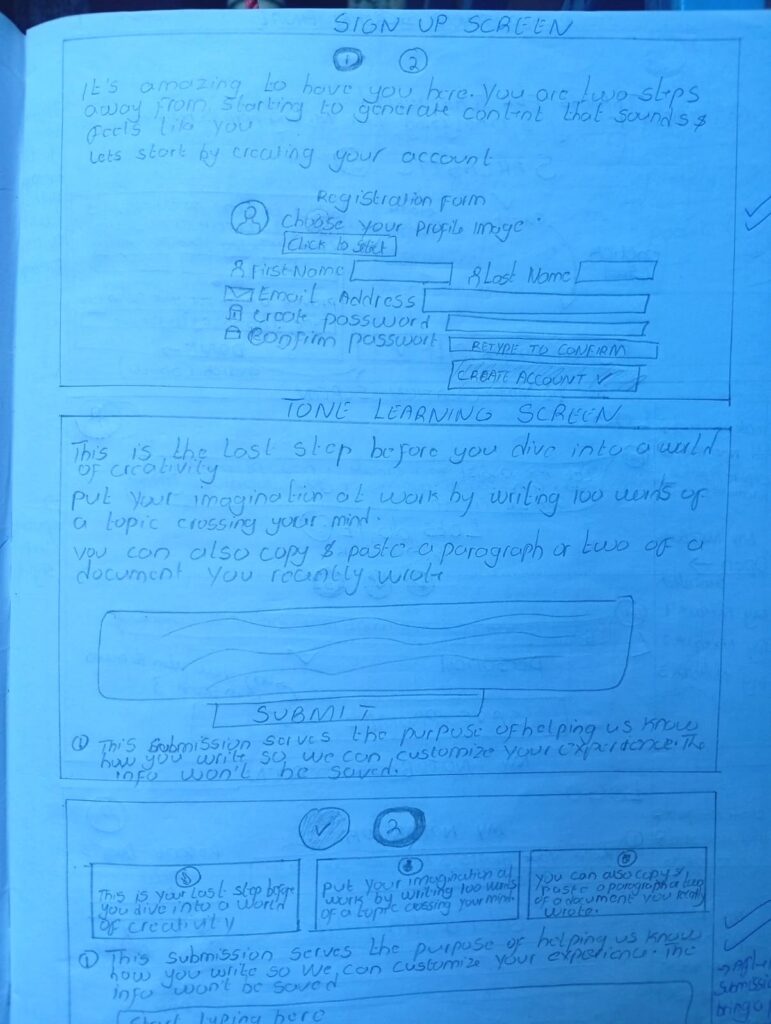 SIGN UP SCREEN
1 2
It's amazing to have you here. You are two steps
away from starting to generate content that sounds &
feels like you
Lets start by creating your account
Registration Form
Choose your profile image
Click to select
First Name Last Name
Email Address
Create password
Confirm password RETYPE TO CONFIRM
CREATE ACCOUNT ✓
TONE LEARNING SCREEN
This is the last step before you dive into a world
of creativity
put your imagination at work by writing 100 words of
a topic crossing your mind.
you can also copy & paste a paragraph or two of a
document you recently wrote
SUBMIT
This submission serves the purpose of helping us know
how you write so we can customize your experience. The
info won't be saved.
✓ 2
This is your last step before
you dive into a world
of creativity
put your imagination at
work by writing 100 words
of a topic crossing your mind.
you can also copy &
paste a paragraph or two
of a document you recently
wrote.
This submission serves the purpose of helping us know
how you write so we can customize your experience. The
info won't be saved
Start typing here
submission